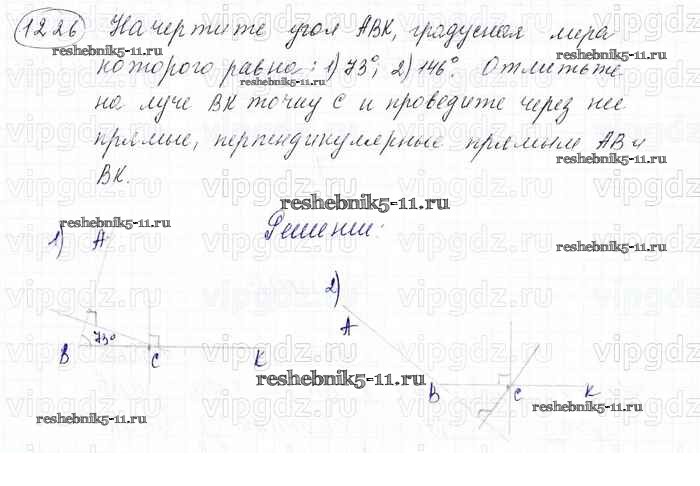 1226 Начертите угол ABK, градусная мера
которого равна: 1) 73°; 2) 146°. Отметьте
на луче BK точку C и проведите через нее
прямые, перпендикулярные прямым AB и
BK.
Решение:
1) A
2)
A
73°
B C K
B C K
reshebnik5-11.ru
reshebnik5-11.ru
reshebnik5-11.ru
reshebnik5-11.ru
reshebnik5-11.ru
reshebnik5-11.ru
reshebnik5-11.ru
reshebnik5-11.ru
reshebnik5-11.ru
reshebnik5-11.ru
vipgdz.ru vipgdz.ru vipgdz.ru vipgdz.ru